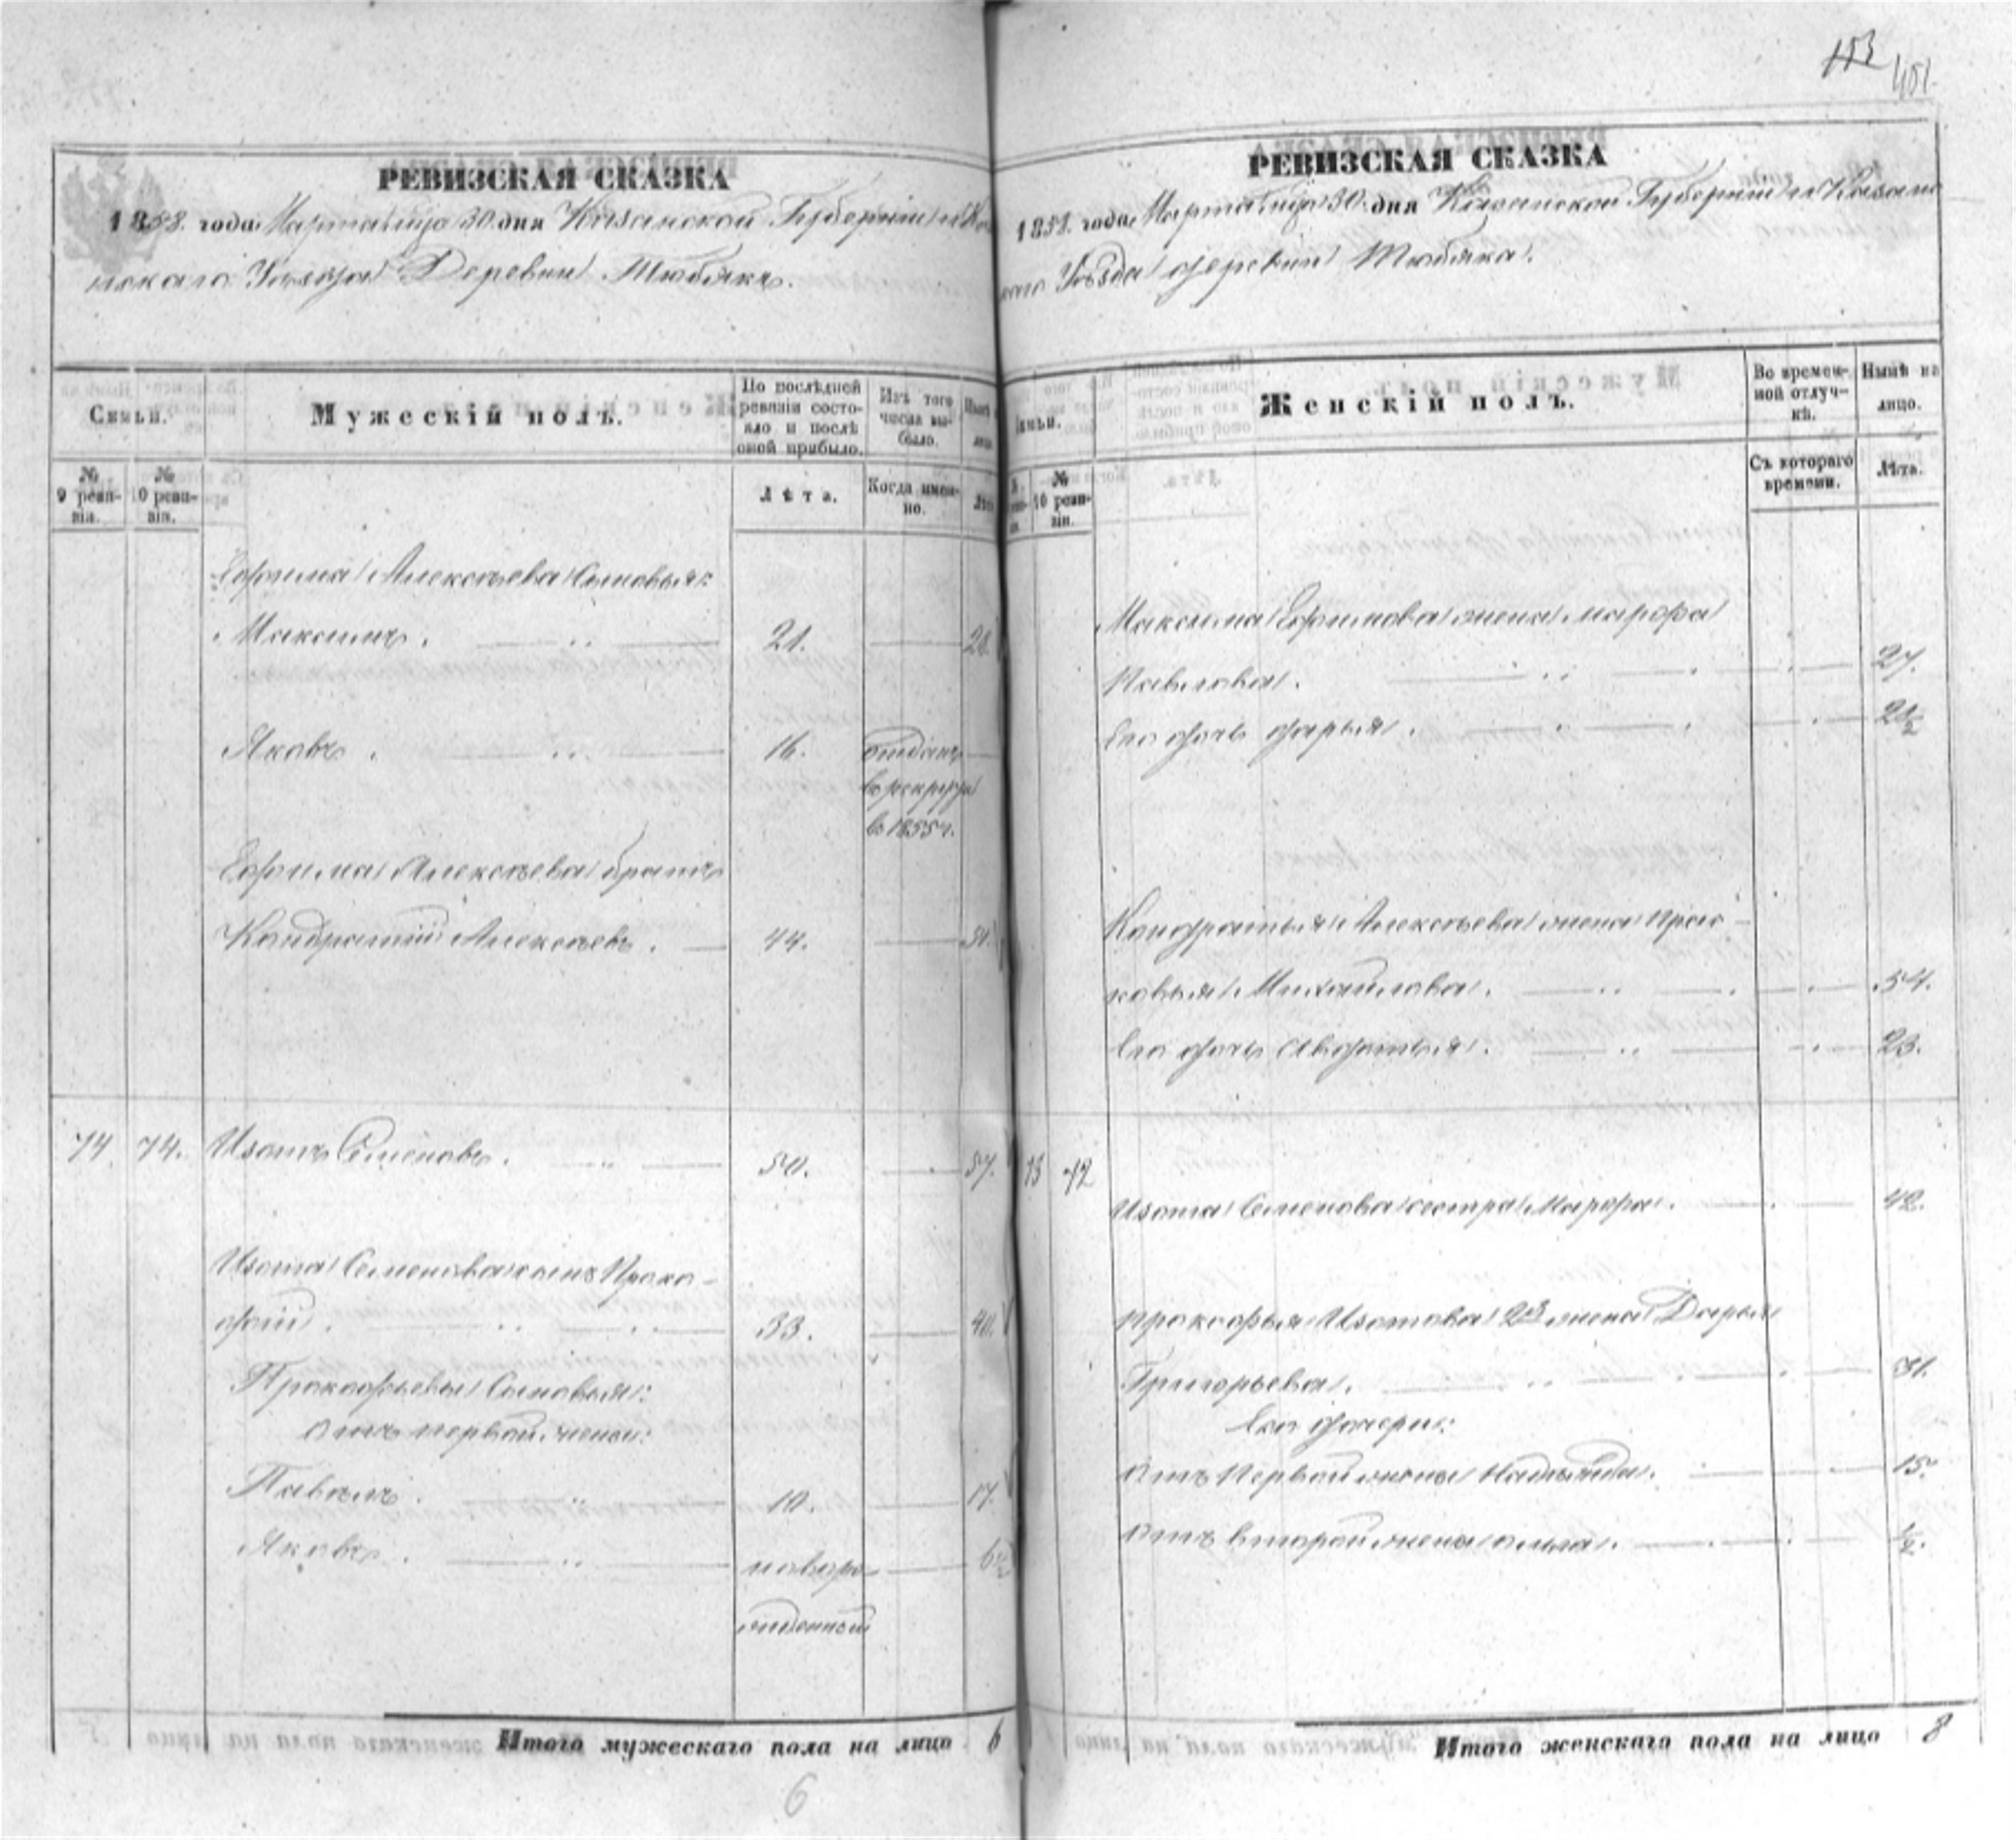 153 451.
РЕВИЗСКАЯ СКАЗКА
1858. года Марта мца 30. дня Казанской Губернии и Ка
нскаго Уѣзда Деревни Тюбякъ.
Семьи.
Мужескій полъ.
По послѣдней ревизіи состояло и послѣ оной прибыло.
Изъ того числа выбыло.
№ 9 ревизіи.
№ 10 ревизіи.
Лѣта.
Когда именно.
Ефима Алексѣева Сыновья:
Максимъ. 21. 28
Яковъ. 16. отданъ
въ рекруты
въ 1855 г.
Ефима Алексѣева братъ
Кандратій Алексѣевъ. 44. 51.
74 74. Изотъ Семеновъ. 50. 57.
Изота Семенова сынъ Проко-
фій. 33. 40.
Прокофьевы Сыновья:
отъ первой жены:
Павелъ. 10. 17.
Яковъ. новоро
жденный 6½
Итого мужескаго пола на лицо 6
6
РЕВИЗСКАЯ СКАЗКА
1858. года Марта мца 30. дня Казанской Губерніи и Казан
скаго Уѣзда деревни Тюбяка.
Семьи.
Женскій полъ.
Во временной отлучкѣ.
Нынѣ на лицо.
№ 10 ревизіи.
Съ котораго времени.
Лѣта.
Максима Ефимова жена Марфа
Павлова. 27.
Его дочь Дарья. 2½
Кондратья Алексѣева жена Прас-
ковья Михайлова. 54.
Его дочь Авдотья. 23.
73 72
Изота Семенова сестра Марфа. 42.
Прокофья Изотова 2я жена Дарья
Григорьева. 31.
Его дочери:
Отъ Первой жены Надежда. 15.
Отъ второй жены Ольга. ½.
Итого женскаго пола на лицо 8